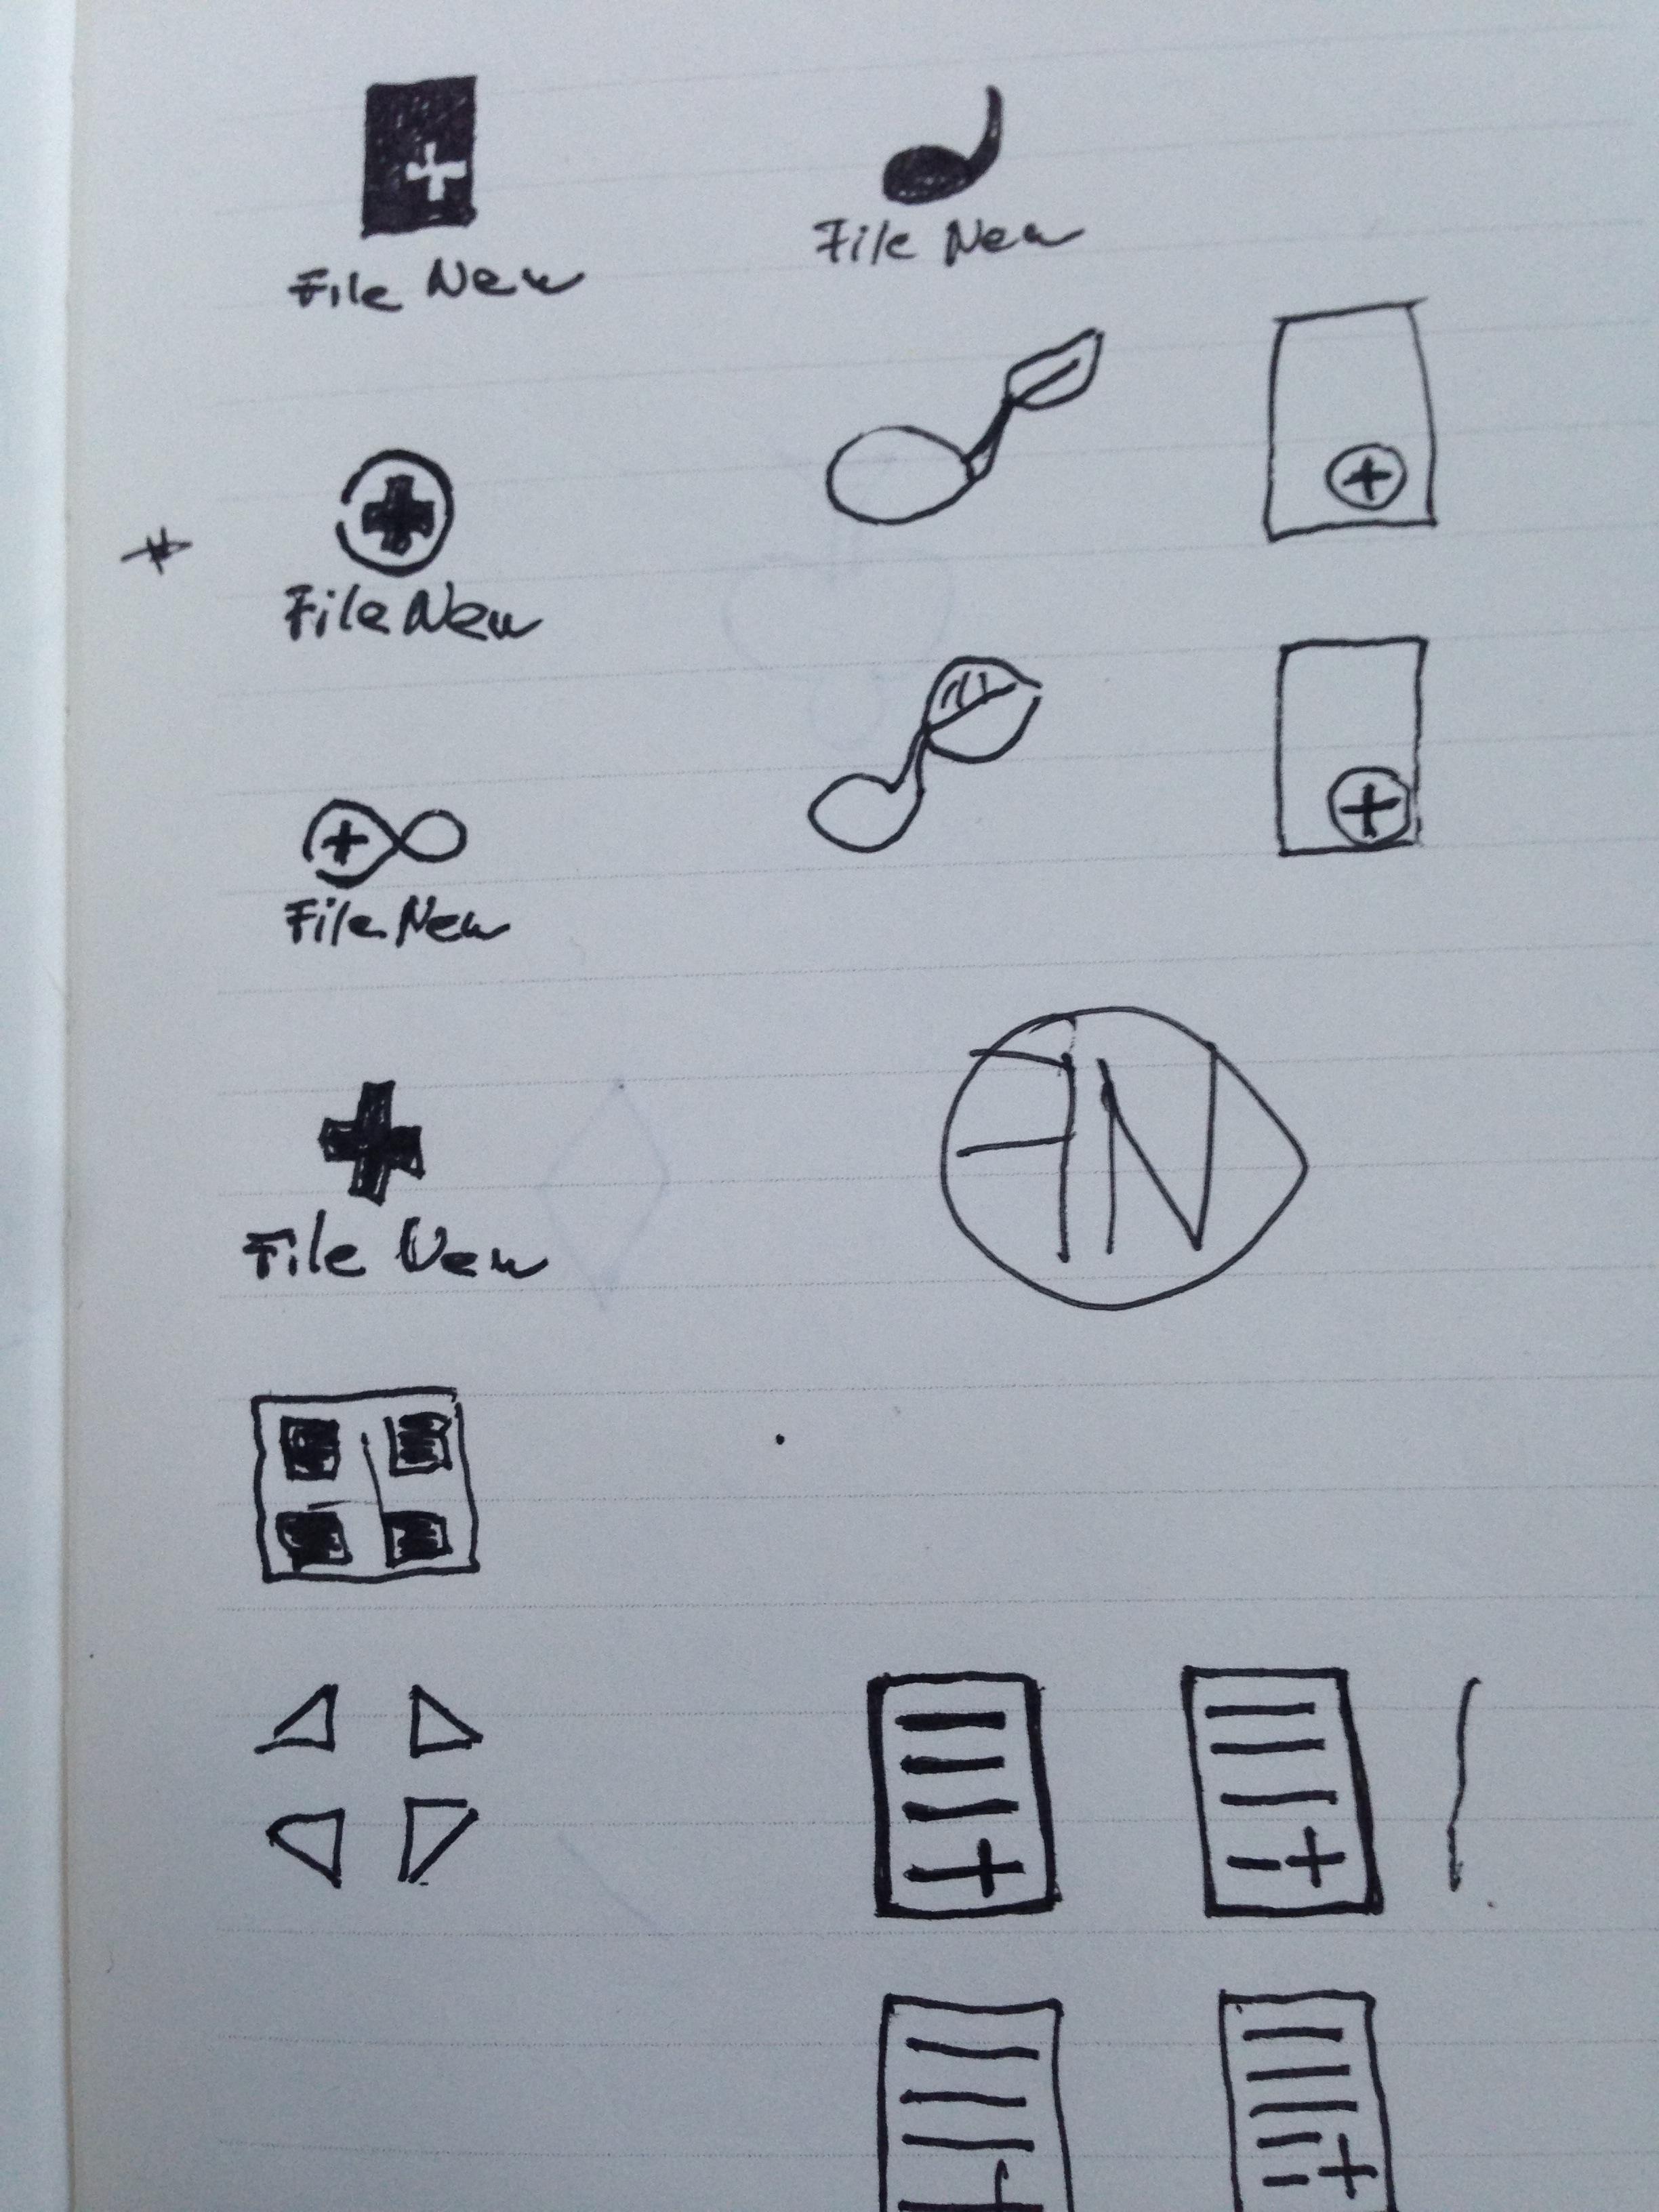 File New
File New
File New
File New
File New
FN